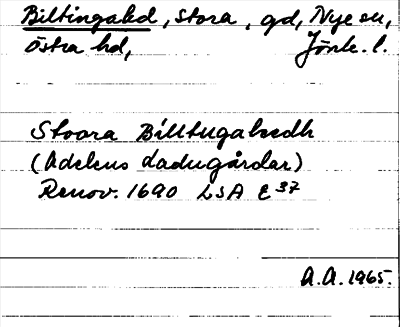 Biltingahd, Stora, gd, Nye sn,
Östra hd, Jönk. l.
Stoora Billtugaheedh
(Adelens Ladugårdar)
Renov. 1690 LSA E 37
A.A. 1965.